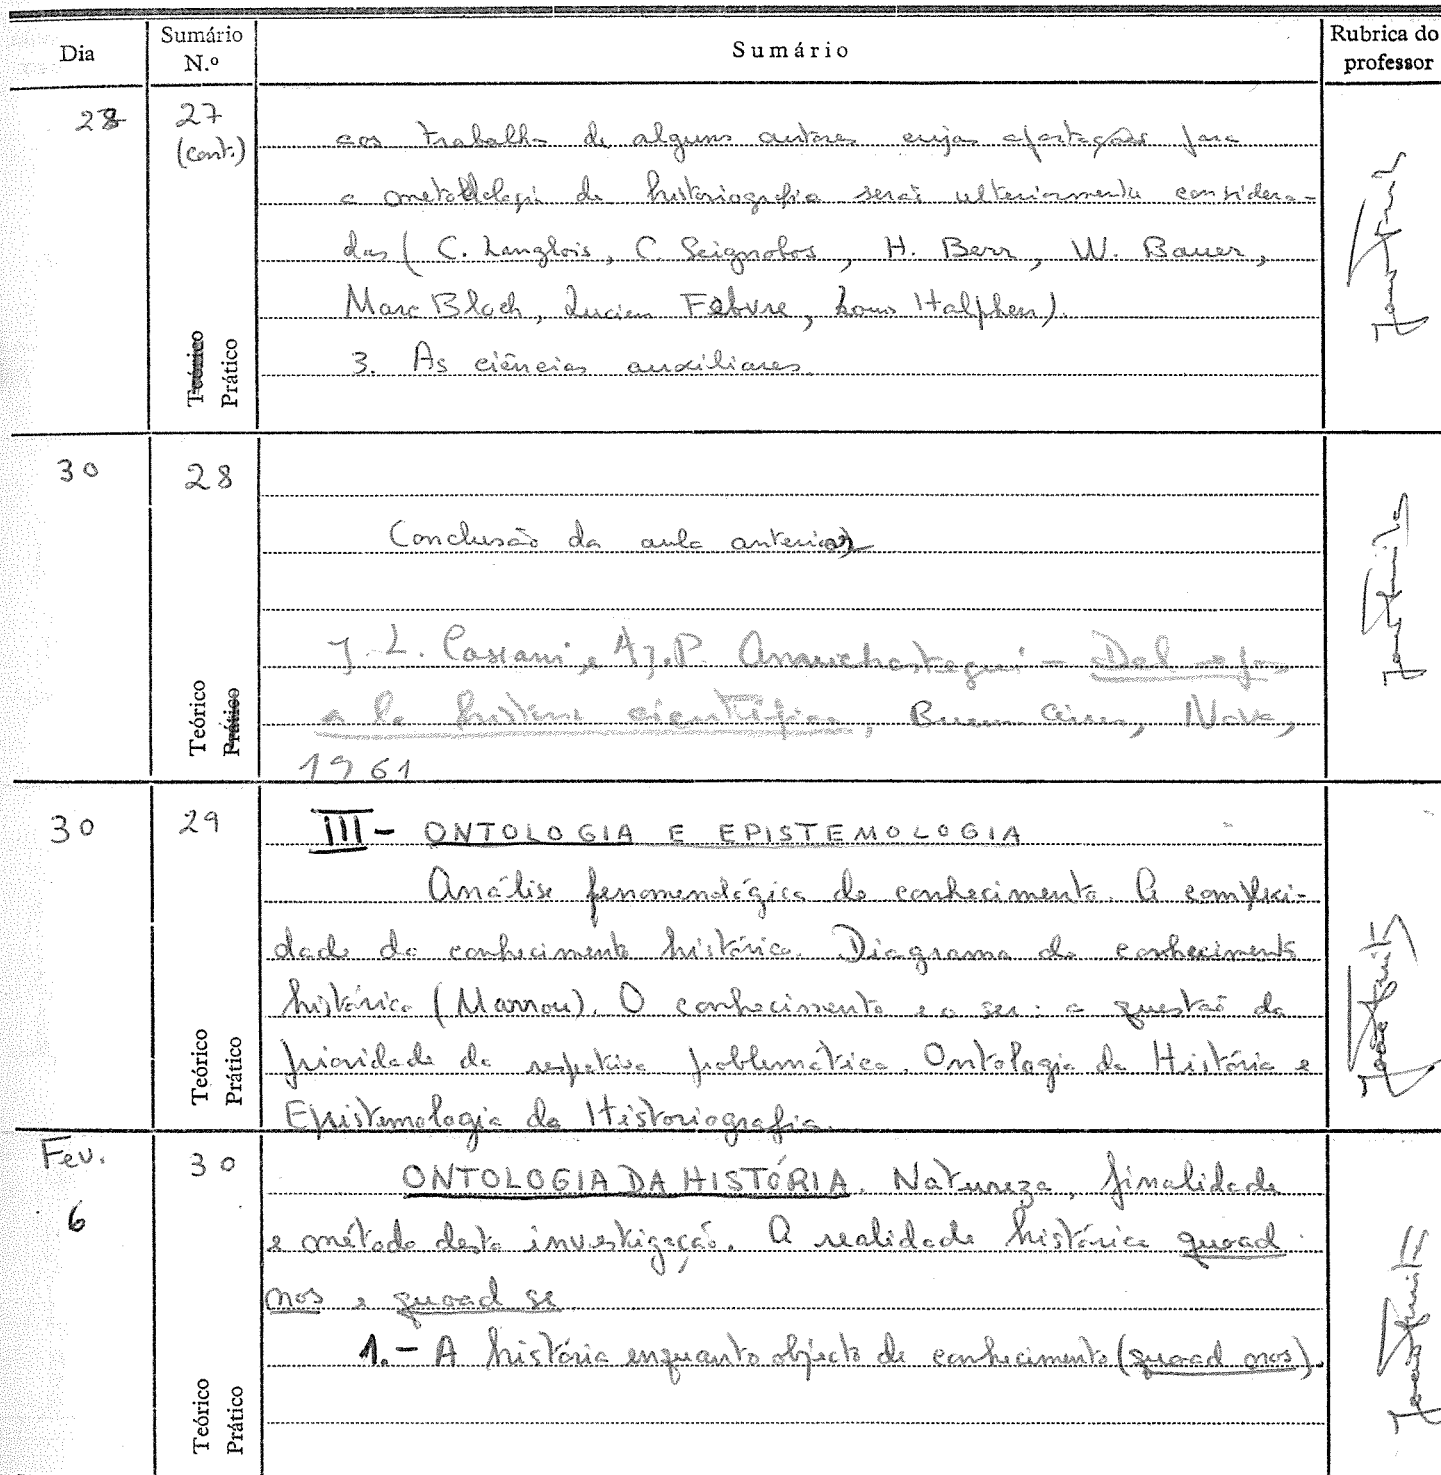 Dia Sumário N.º Sumário Rubrica do professor
28 27 (cont.)
aos trabalhos de alguns autores cujas aportações para
a metodologia da historiografia serão ulteriormente considera-
das (C. Langlois, C. Seignobos, H. Berr, W. Bauer,
Marc Bloch, Lucien Febvre, Louis Halphen).
3. As ciências auxiliares
Teórico Prático
30 28
Conclusão da aula anterior
J. L. Cassani, e A. J. P. Amuchastegui - Del
a la historia científica, Buenos Aires, Nova,
1961
Teórico Prático
30 29
III - ONTOLOGIA E EPISTEMOLOGIA
Análise fenomenológica do conhecimento. A complexi-
dade do conhecimento histórico. Diagrama do conhecimento
histórico (Marrou). O conhecimento e o ser: a questão da
prioridade da respectiva problemática. Ontologia da História e
Epistemologia da Historiografia.
Teórico Prático
Fev. 6 30
ONTOLOGIA DA HISTÓRIA. Natureza, finalidade
e método desta investigação. A realidade histórica quoad
nos e quoad se
1. - A história enquanto objecto de conhecimento (quoad nos).
Teórico Prático